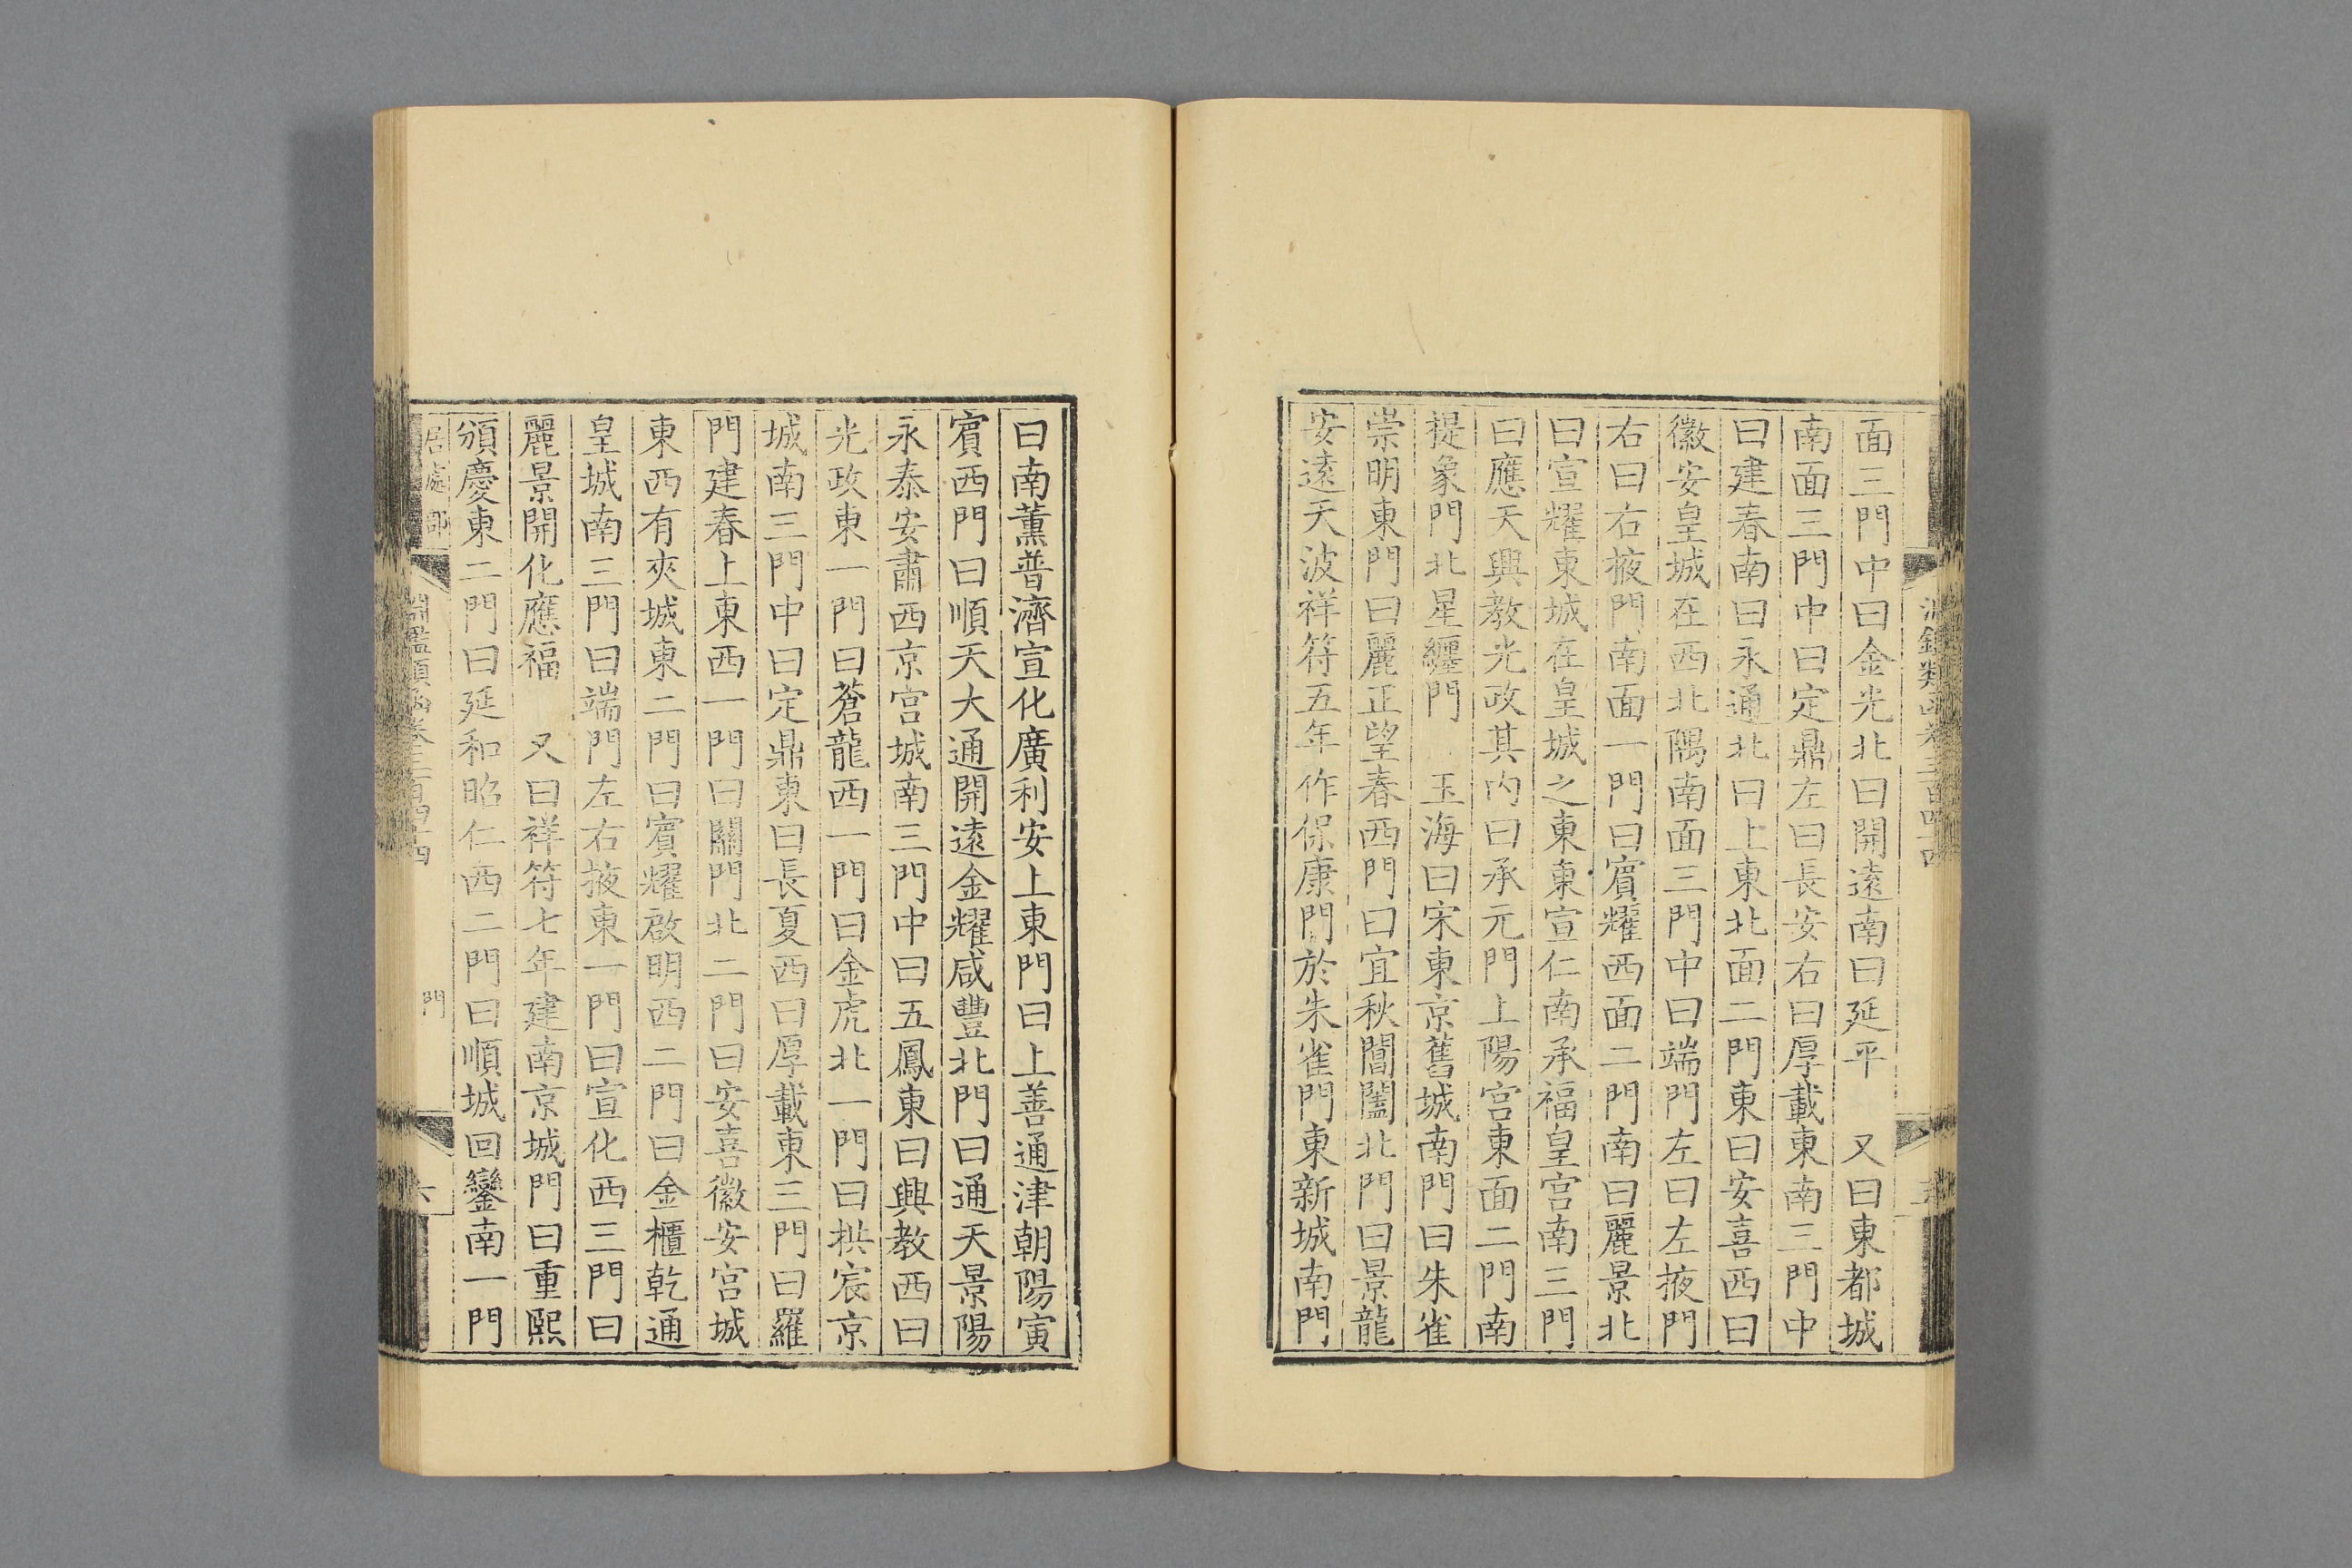 面三門中曰金光北曰開遠南曰延平　又曰東都城
南面三門中曰定鼎左曰長安右曰厚載東南三門中
曰建春南曰永通北曰上東北面二門東曰安喜西曰
徽安皇城在西北隅南面三門中曰端門左曰左掖門
右曰右掖門南面一門曰賓耀西面二門南曰麗景北
曰宣耀東城在皇城之東東宣仁南承福皇宮南三門
曰應天興教光政其内曰承元門上陽宮東面二門南
提象門北星纏門　玉海曰宋東京舊城南門曰朱雀
崇明東門曰麗正望春西門曰宜秋閶闔北門曰景龍
安遠天波祥符五年作保康門於朱雀門東新城南門
曰南薰普濟宣化廣利安上東門曰上善通津朝陽寅
賓西門曰順天大通開遠金耀咸豐北門曰通天景陽
永泰安肅西京宮城南三門中曰五鳳東曰興教西曰
光政東一門曰蒼龍西一門曰金虎北一門曰拱宸京
城南三門中曰定鼎東曰長夏西曰厚載東三門曰羅
門建春上東西一門曰關門北二門曰安喜徽安宮城
東西有夾城東二門曰賓耀啟明西二門曰金櫃乾通
皇城南三門曰端門左右掖東一門曰宣化西三門曰
麗景開化應福　又曰祥符七年建南京城門曰重熙
頒慶東二門曰延和昭仁西二門曰順城回鑾南一門
居處部　淵鑑類函卷三百四十四　門　六